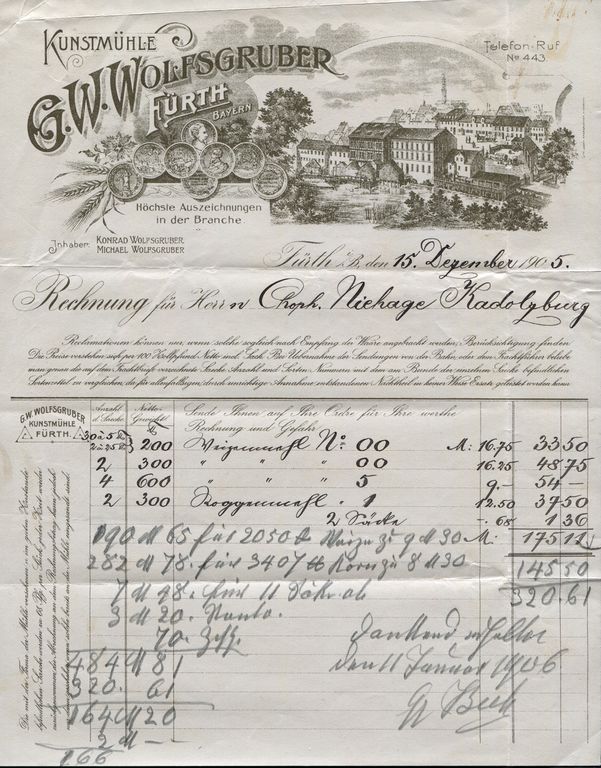 KUNSTMÜHLE
G.W. WOLFSGRUBER
FÜRTH
BAYERN
Telefon-Ruf
No 443
Höchste Auszeichnungen
in der Branche.
Inhaber: KONRAD WOLFSGRUBER
MICHAEL WOLFSGRUBER
Fürth i/B, den 15. Dezember 1905.
Rechnung für Herrn Niehage Kadolzburg
Reclamationen können nur, wenn solche sogleich nach Empfang der Waare angebracht werden, Berücksichtigung finden
Die Preise verstehen sich per 100 Netto incl. Sack. Bei Uebernahme der Sendungen von der Bahn, oder dem Frachtfuhren beliebe
man genau die auf dem Frachtbriefe verzeichnete Säcke Anzahl und Sorten Nummern mit dem am Bande der einzelnen Säcke befindlichen
Sortenzettel zu vergleichen, da für allenfallsigen, durch unrichtige Annahme entstandenen Nachtheil in keiner Weise Ersatz geleistet werden kann
G.W. WOLFSGRUBER
KUNSTMÜHLE
FÜRTH.
Anzahl d. Säcke
Netto-Gewicht
Sende Ihnen auf Ihre Ordre für Ihre werthe
Rechnung und Gefahr
200 Weizenmehl No 00 M: 16.75 33 50
2 300 " " " 00 16.25 48 75
4 600 " " " 5 9.- 54 –
2 300 Roggenmehl · 1 12.50 37 50
2 Säcke -.68 1 36
M: 175 11
190 M 65 für 2050 Waizn zu 9 M 30
282 M 78 für 3407 Korn zu 8 M 30
145 50
320.61
7 M 48 für 11 Säke ab
3 M 20
70
484 M 81
320. 61
164 M 20
2 M –
166
Dankend erhalten
den 11 Januar 1906